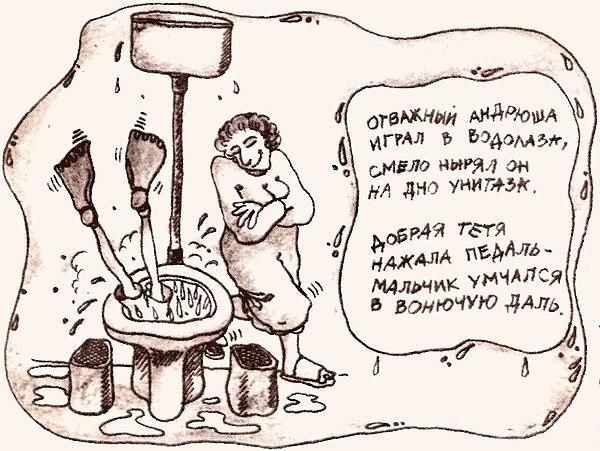 ОТВАЖНЫЙ АНДРЮША
ИГРАЛ В ВОДОЛАЗА,
СМЕЛО НЫРЯЛ ОН
НА ДНО УНИТАЗА.
ДОБРАЯ ТЕТЯ
НАЖАЛА ПЕДАЛЬ-
МАЛЬЧИК УМЧАЛСЯ
В ВОНЮЧУЮ ДАЛЬ.